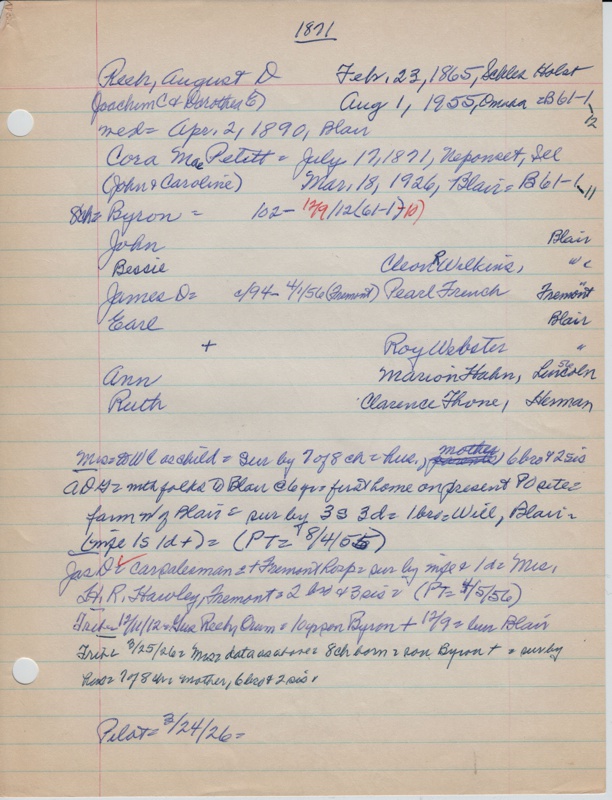 1871
Reeh, August D Feb. 23, 1865, Schles Holst
(Joachim C & Dorothea E) Aug 1, 1955, Omaha = B61-1-12
wed= Apr. 2, 1890, Blair
Cora Mae Petitt = July 17, 1871, Neponset, Ill
(John & Caroline) Mar. 18, 1926, Blair = B61-1-11
8ch= Byron = 102- 12/9/12 (61-1-10)
John Blair
Bessie Cleon R Wilkins, " "
James D= c/94- 4/1/56 (Fremont) Pearl French Fremont
Earl Blair
+ Roy Webster "
Ann Marion Hahn, Lincoln 56
Ruth Clarence Thone, Herman
Mrs= to WC as child = sur by 7 of 8 ch = hus., mother, 6 bro & 2 sis
A D H= with folks to Blair @ 6 yr = first home on present PO site=
farm w of Blair = sur by 3 s 3 d = 1 bro = Will, Blair=
(mge 1s 1d +) = (PT= 8/4/55)
Jas D= car salesman = + Fremont Hosp = sur by mge & 1d = Mrs.
H. R. Hawley, Fremont = 2 bro & 3 sis = (PT= 4/5/56)
Trib= 12/11/12 = Gus Reeh, Orum = 10 yr son Byron + 12/9 = bur Blair
Trib= 3/25/26 = Mrs= data as above = 8 ch born = son Byron + = sur by
hus= 7 of 8 ch = mother, 6 bro & 2 sis.
Pilot= 3/24/26=